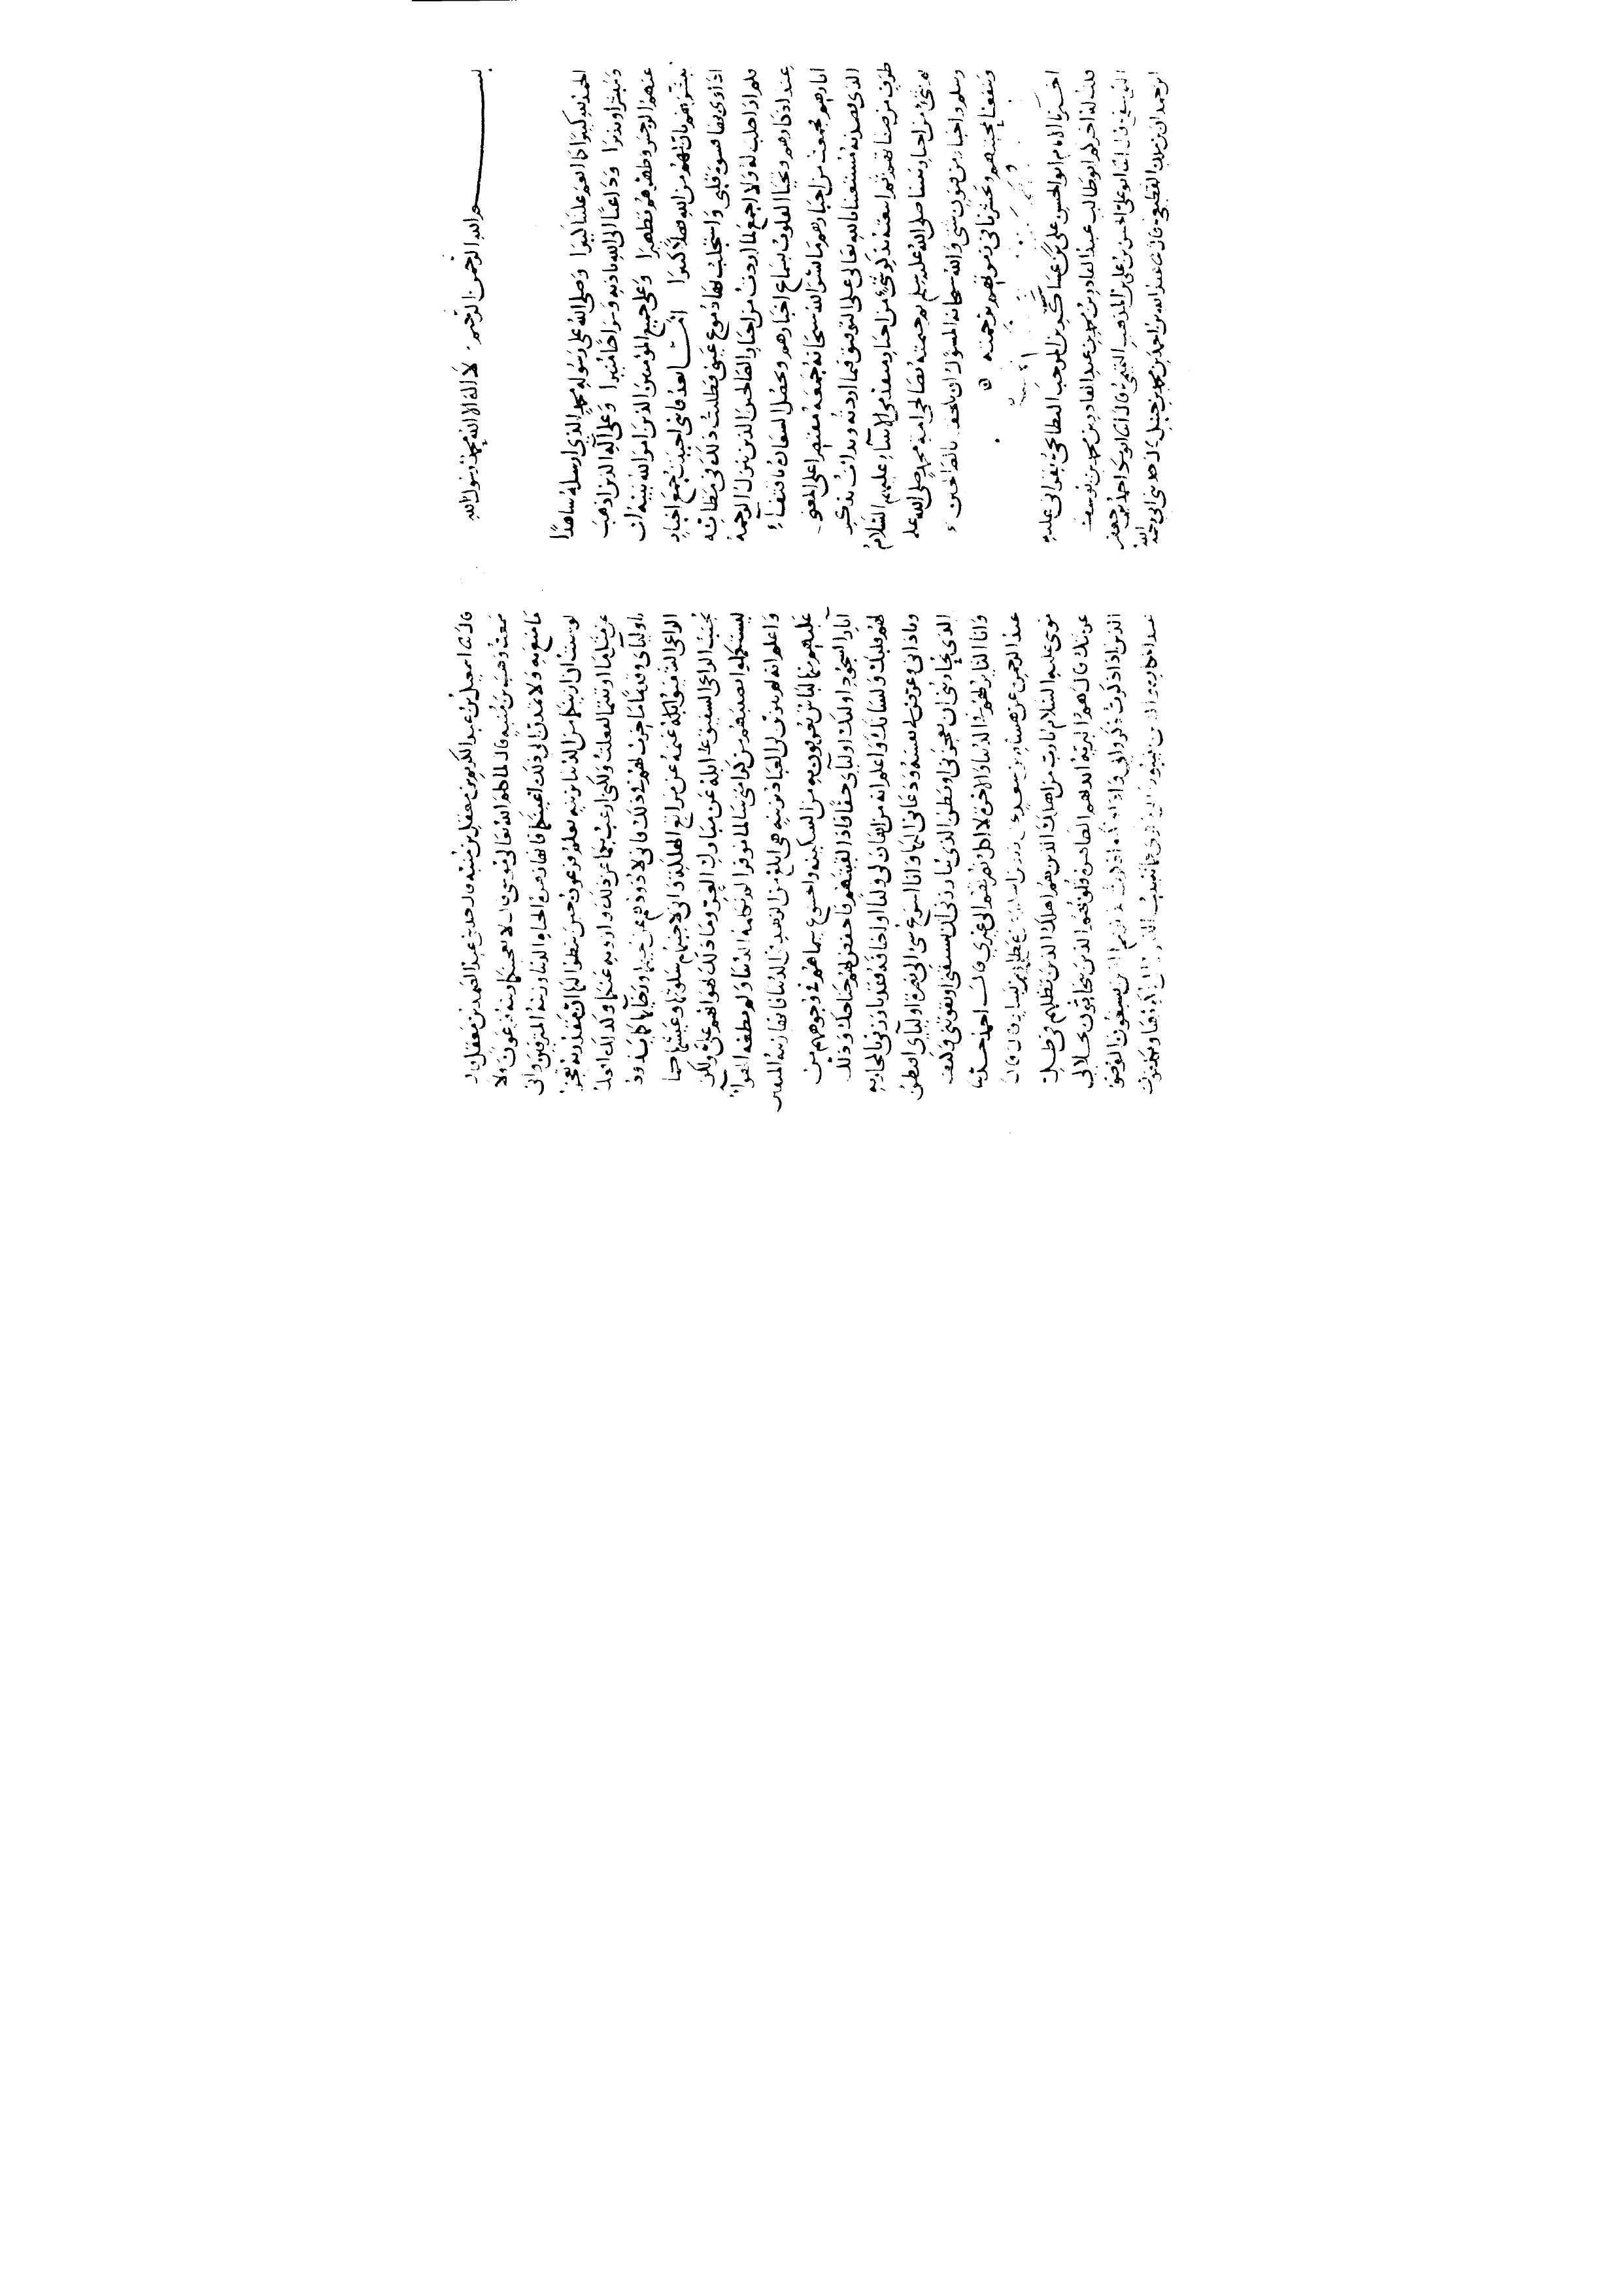 بسم الله الرحمن الرحيم لا اله الا الله محمد رسول الله
الحمد لله كثيرا كما انعم علينا كثيرا وصلى الله على رسوله محمد الذي ارسله شاهدا
ومبشرا ونذيرا وداعيا الى الله باذنه وسراجا منيرا وعلى آله الذين اذهب
عنهم الرجس وطهرهم تطهيرا وعلى جميع المؤمنين الذين امر الله نبيه ان
يبشرهم بان لهم من الله فضلا كبيرا اما بعد فاني احببت جمع اخبار
اداوى بها قسوة قلبي واستجلب بها دموع عيني فطلبت ذلك في مظانه
فلم ار اجلب له ولا اجمع لما اردت من اخبار الصالحين الذين تنزل الرحمة
عند اذكارهم وتحيا القلوب بسماع اخبارهم وتحصل السعادة باقتفاء
اثارهم فجمعت من اخبارهم ما يسر الله سبحانه جمعه مقتصرا على المعنى
الذي قصدته مستعينا بالله تعالى على التوفيق فيما اردته وبدات بذكر
طرف من ثم اتبعته بذكر شيء من اخبار متقدمي الانبياء عليهم السلام
ثم شيء من اخبار نبينا صلى الله عليه وسلم ثم ختمته بصالحي امة محمد صلى الله عليه
وسلم واخبار من فنون شتى والله سبحانه المسؤل ان يلحقنا بالصالحين
وينفعنا بمحبتهم ويحشرنا في زمرتهم برحمته
اخبرنا الامام ابو الحسن علي بن عساكر بن المرحب البطائحي بقراتي عليه
قلت له اخبركم ابو طالب عبد القادر بن محمد بن عبد القادر بن محمد بن يوسف
قال انا ابو علي الحسن بن علي بن المذهب التميمي قال انا ابو بكر احمد بن جعفر
بن حمدان بن مالك القطيعي قال ثنا عبد الله بن احمد بن محمد بن حنبل قال حدثني ابي رحمه الله
قال ثنا اسمعيل بن عبد الكريم بن معقل بن منبه قال حدثني عبد الصمد بن معقل قال
سمعت وهب بن منبه قال لما كلم الله تعالى موسى قال لا يعجبنكما زينة فرعون ولا
ما متع به ولا تمدا الى ذلك اعينكما فانها زهرة الحياة الدنيا وزينة المترفين واني
لو شئت ان ازينكما من الدنيا بزينة يعلم فرعون حين ينظر اليها ان مقدرته تعجز
عن مثل ما اوتيتما لفعلت ولكني ارغب بكما عن ذلك وازويه عنكما وكذلك افعل
باوليائي وقديما ما خرت لهم في ذلك فاني لاذودهم عن نعيمها ورخائها كما يذود
الراعي الشفيق ابله غنمه عن مراتع الهلكة واني لاجنبهم سلوتها وعيشها كما
يجنب الراعي الشفيق ابله عن مبارك العر وما ذلك لهوانهم علي ولكن
ليستكملوا نصيبهم من كرامتي سالما موفرا لم تكلمه الدنيا ولم يطغه الهوى
واعلم انه لم يتزين لي العباد بزينة هي ابلغ من الزهد في الدنيا فانها زينة المتقين
عليهم منها لباس يعرفون به من السكينة والخشوع سيماهم في وجوههم من
اثر السجود اولئك اوليائي حقا فاذا لقيتهم فاخفض لهم جناحك وذلل
لهم قلبك ولسانك واعلم انه من اهان لي وليا او اخافه فقد بارزني بالمحاربة
وباداني وعرض لي نفسه ودعاني اليها وانا اسرع شيء الى نصرة اوليائي افيظن
الذي يحاربني ان يعجزني او يظن الذي يبارزني ان يسبقني او يفوتني وكيف
وانا الثائر لهم في الدنيا والاخرة لا اكل نصرتهم الى غيري قال احمد حدثنا
عبد الرحمن عن هشام بن سعد عن زيد بن اسلم عن عطاء بن يسار قال قال
موسى عليه السلام يا رب من اهلك الذين هم اهلك الذين تظلهم في ظل
عرشك قال هم البرية ايديهم الطاهرة قلوبهم الذين يتحابون بجلالي
الذين اذا ذكرت ذكروا بي واذا ذكروا ذكرت بذكرهم الذين يسبغون الوضوء